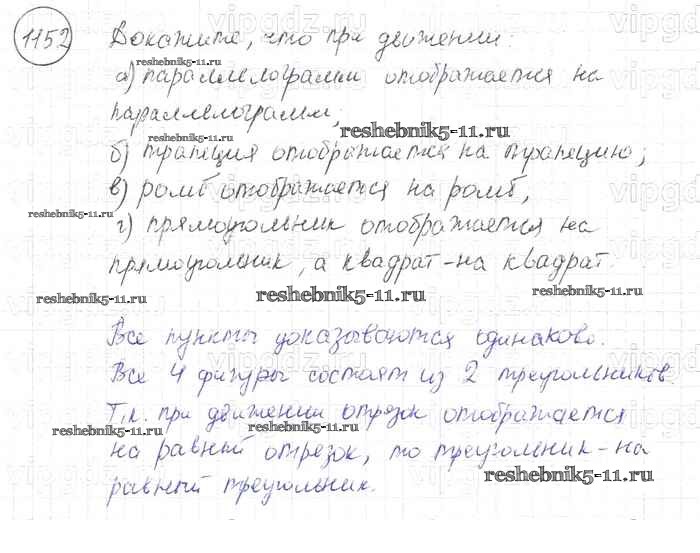 1152
Докажите, что при движении:
а) параллелограмм отображается на
параллелограмм;
б) трапеция отображается на трапецию;
в) ромб отображается на ромб,
г) прямоугольник отображается на
прямоугольник, а квадрат-на квадрат.
Все пункты доказываются одинаково.
Все 4 фигуры состоят из 2 треугольников.
Т.к. при движении отрезок отображается
на равный отрезок, то треугольник-на
равный треугольник.
reshebnik5-11.ru
reshebnik5-11.ru
reshebnik5-11.ru
reshebnik5-11.ru
reshebnik5-11.ru
reshebnik5-11.ru
reshebnik5-11.ru
reshebnik5-11.ru
reshebnik5-11.ru
reshebnik5-11.ru
reshebnik5-11.ru